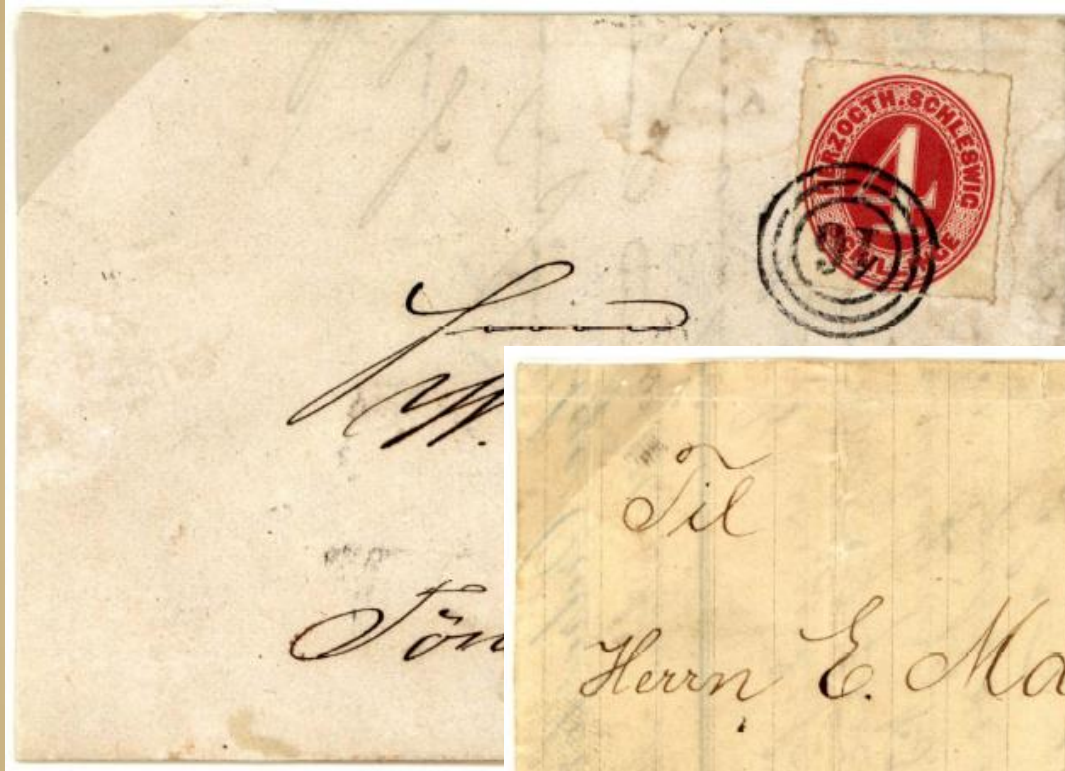 HERZOGTH. SCHLESWIG
4
SCHILLINGE
Herrn
Tön
Til
Herrn E. Ma